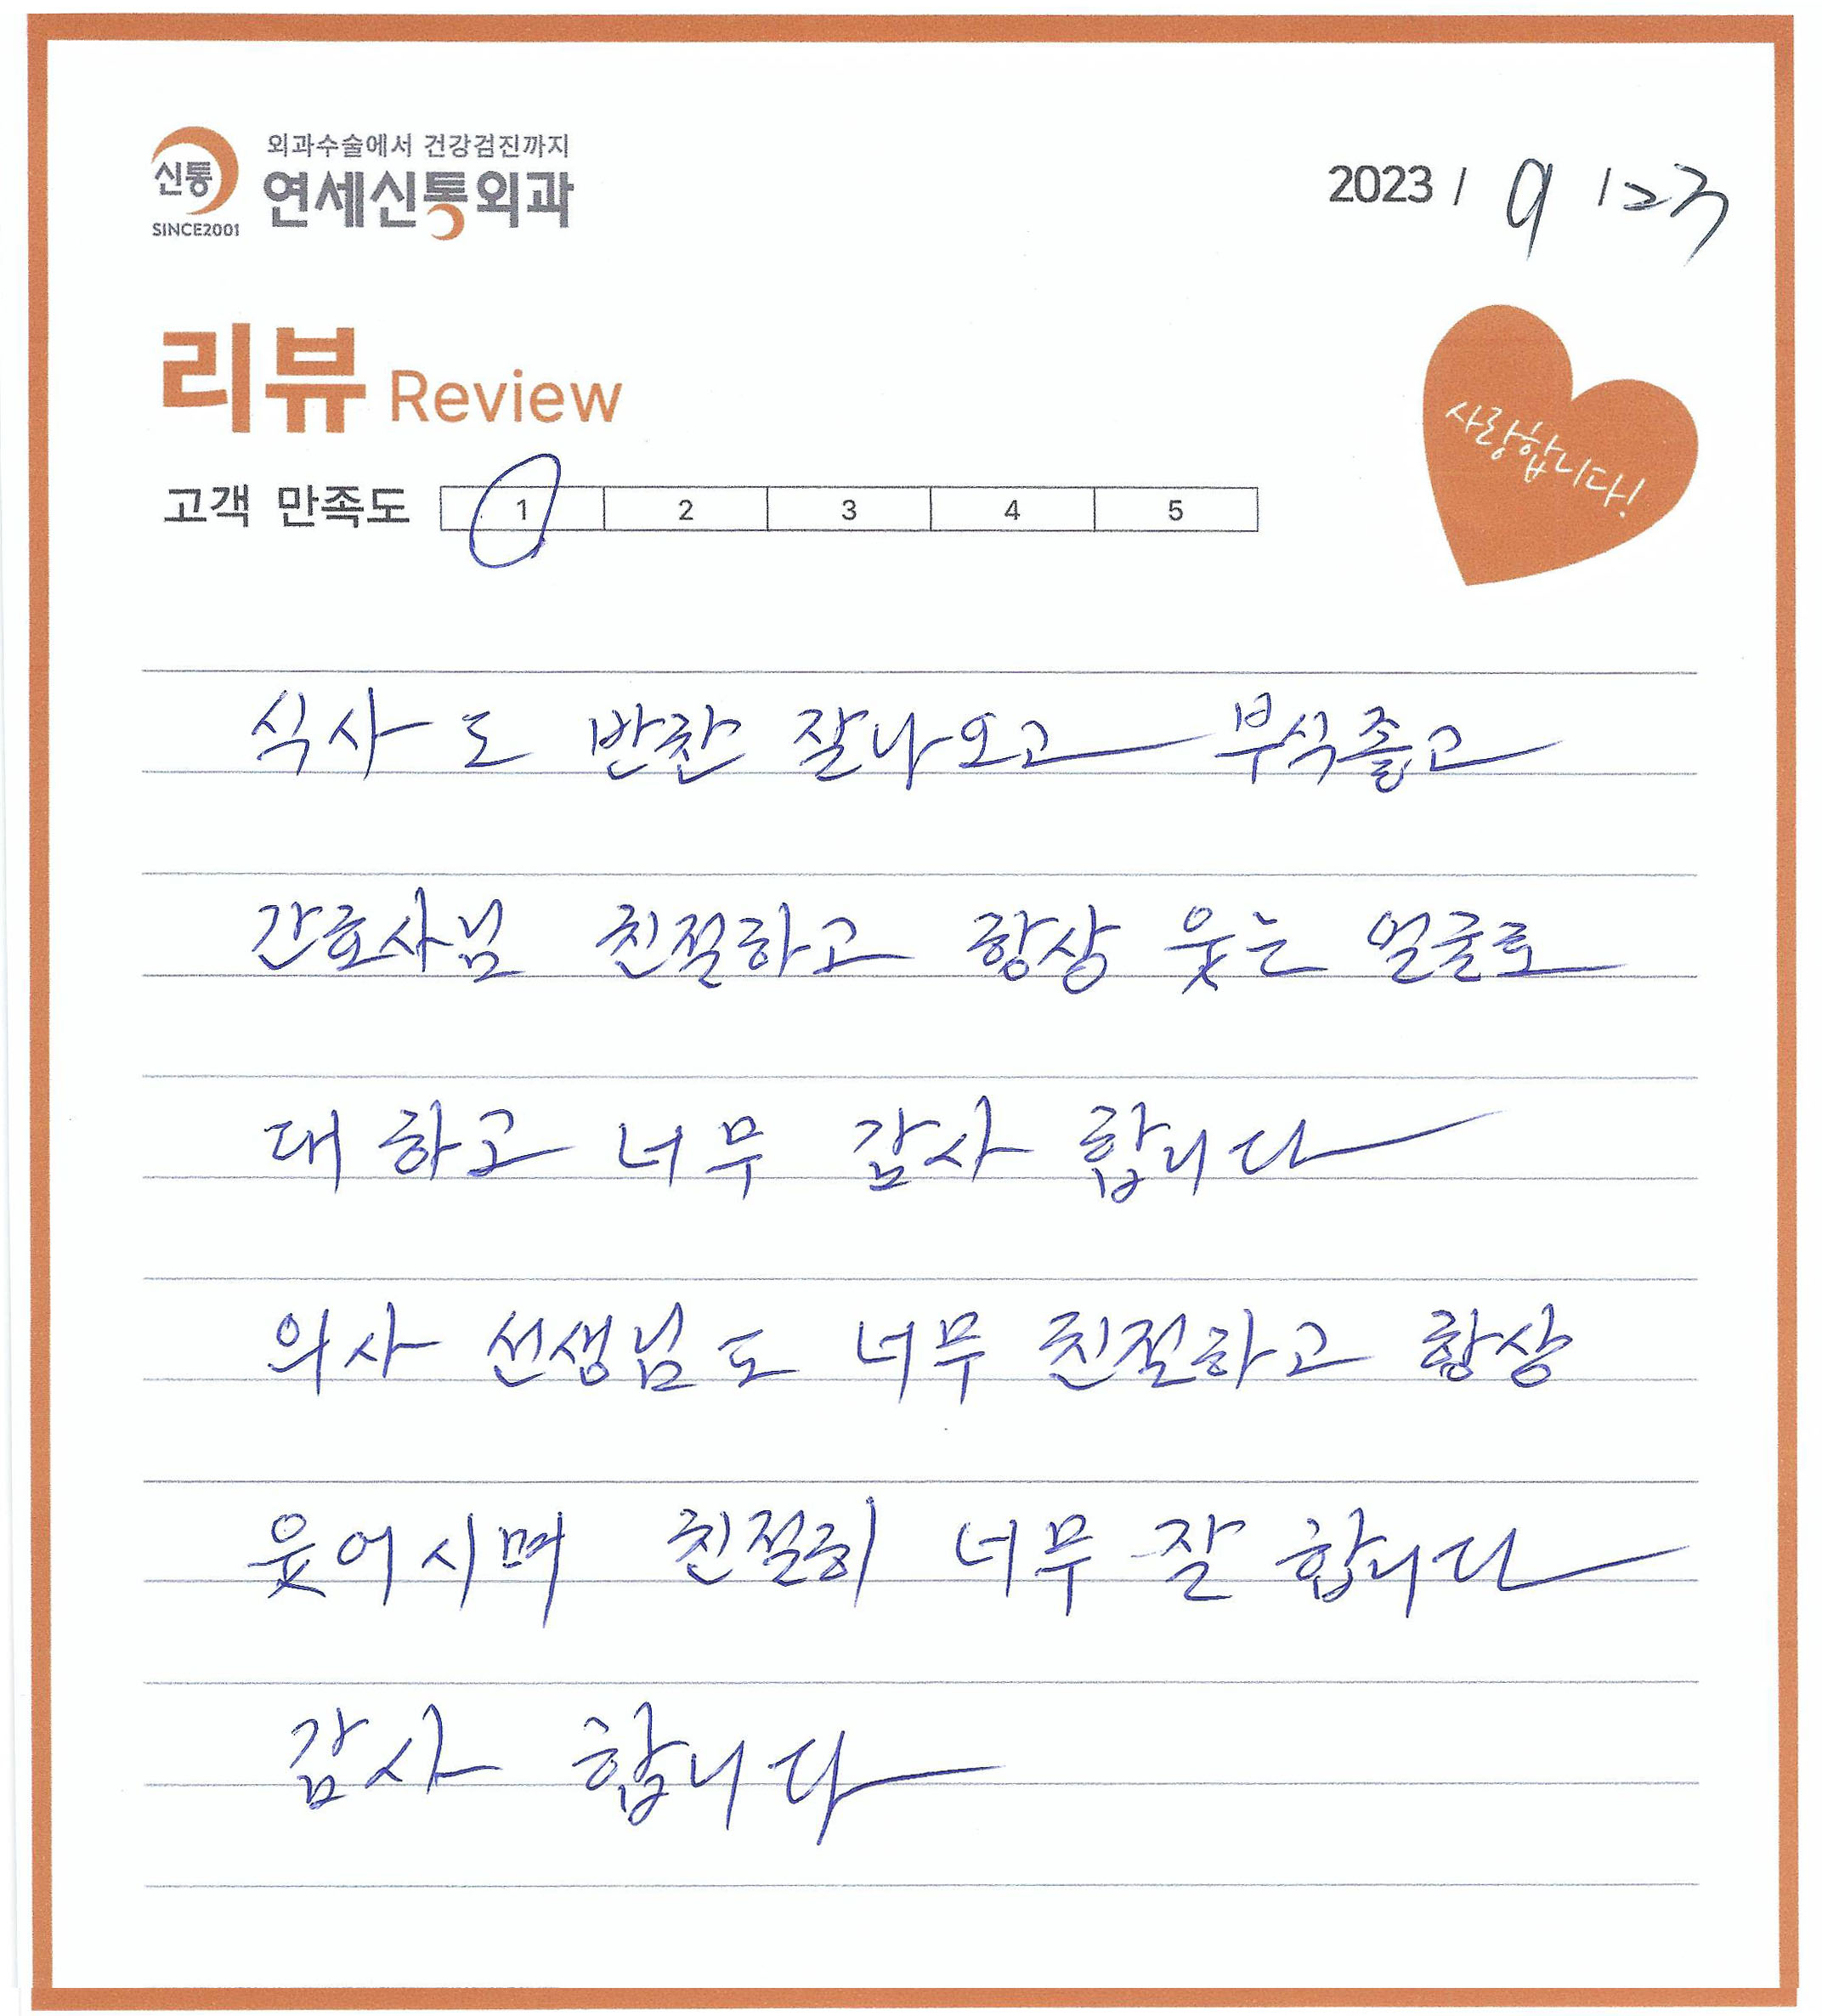 외과수술에서 건강검진까지
신통 연세신통외과
SINCE2001
2023 / 9 / 23
리뷰 Review
사랑합니다!
고객 만족도 1 2 3 4 5
식사도 반찬 잘나오고 부식좋고
간호사님 친절하고 항상 웃는 얼굴로
대하고 너무 감사 합니다
의사 선생님도 너무 친절하고 항상
웃어시며 친절히 너무 잘 합니다
감사 합니다